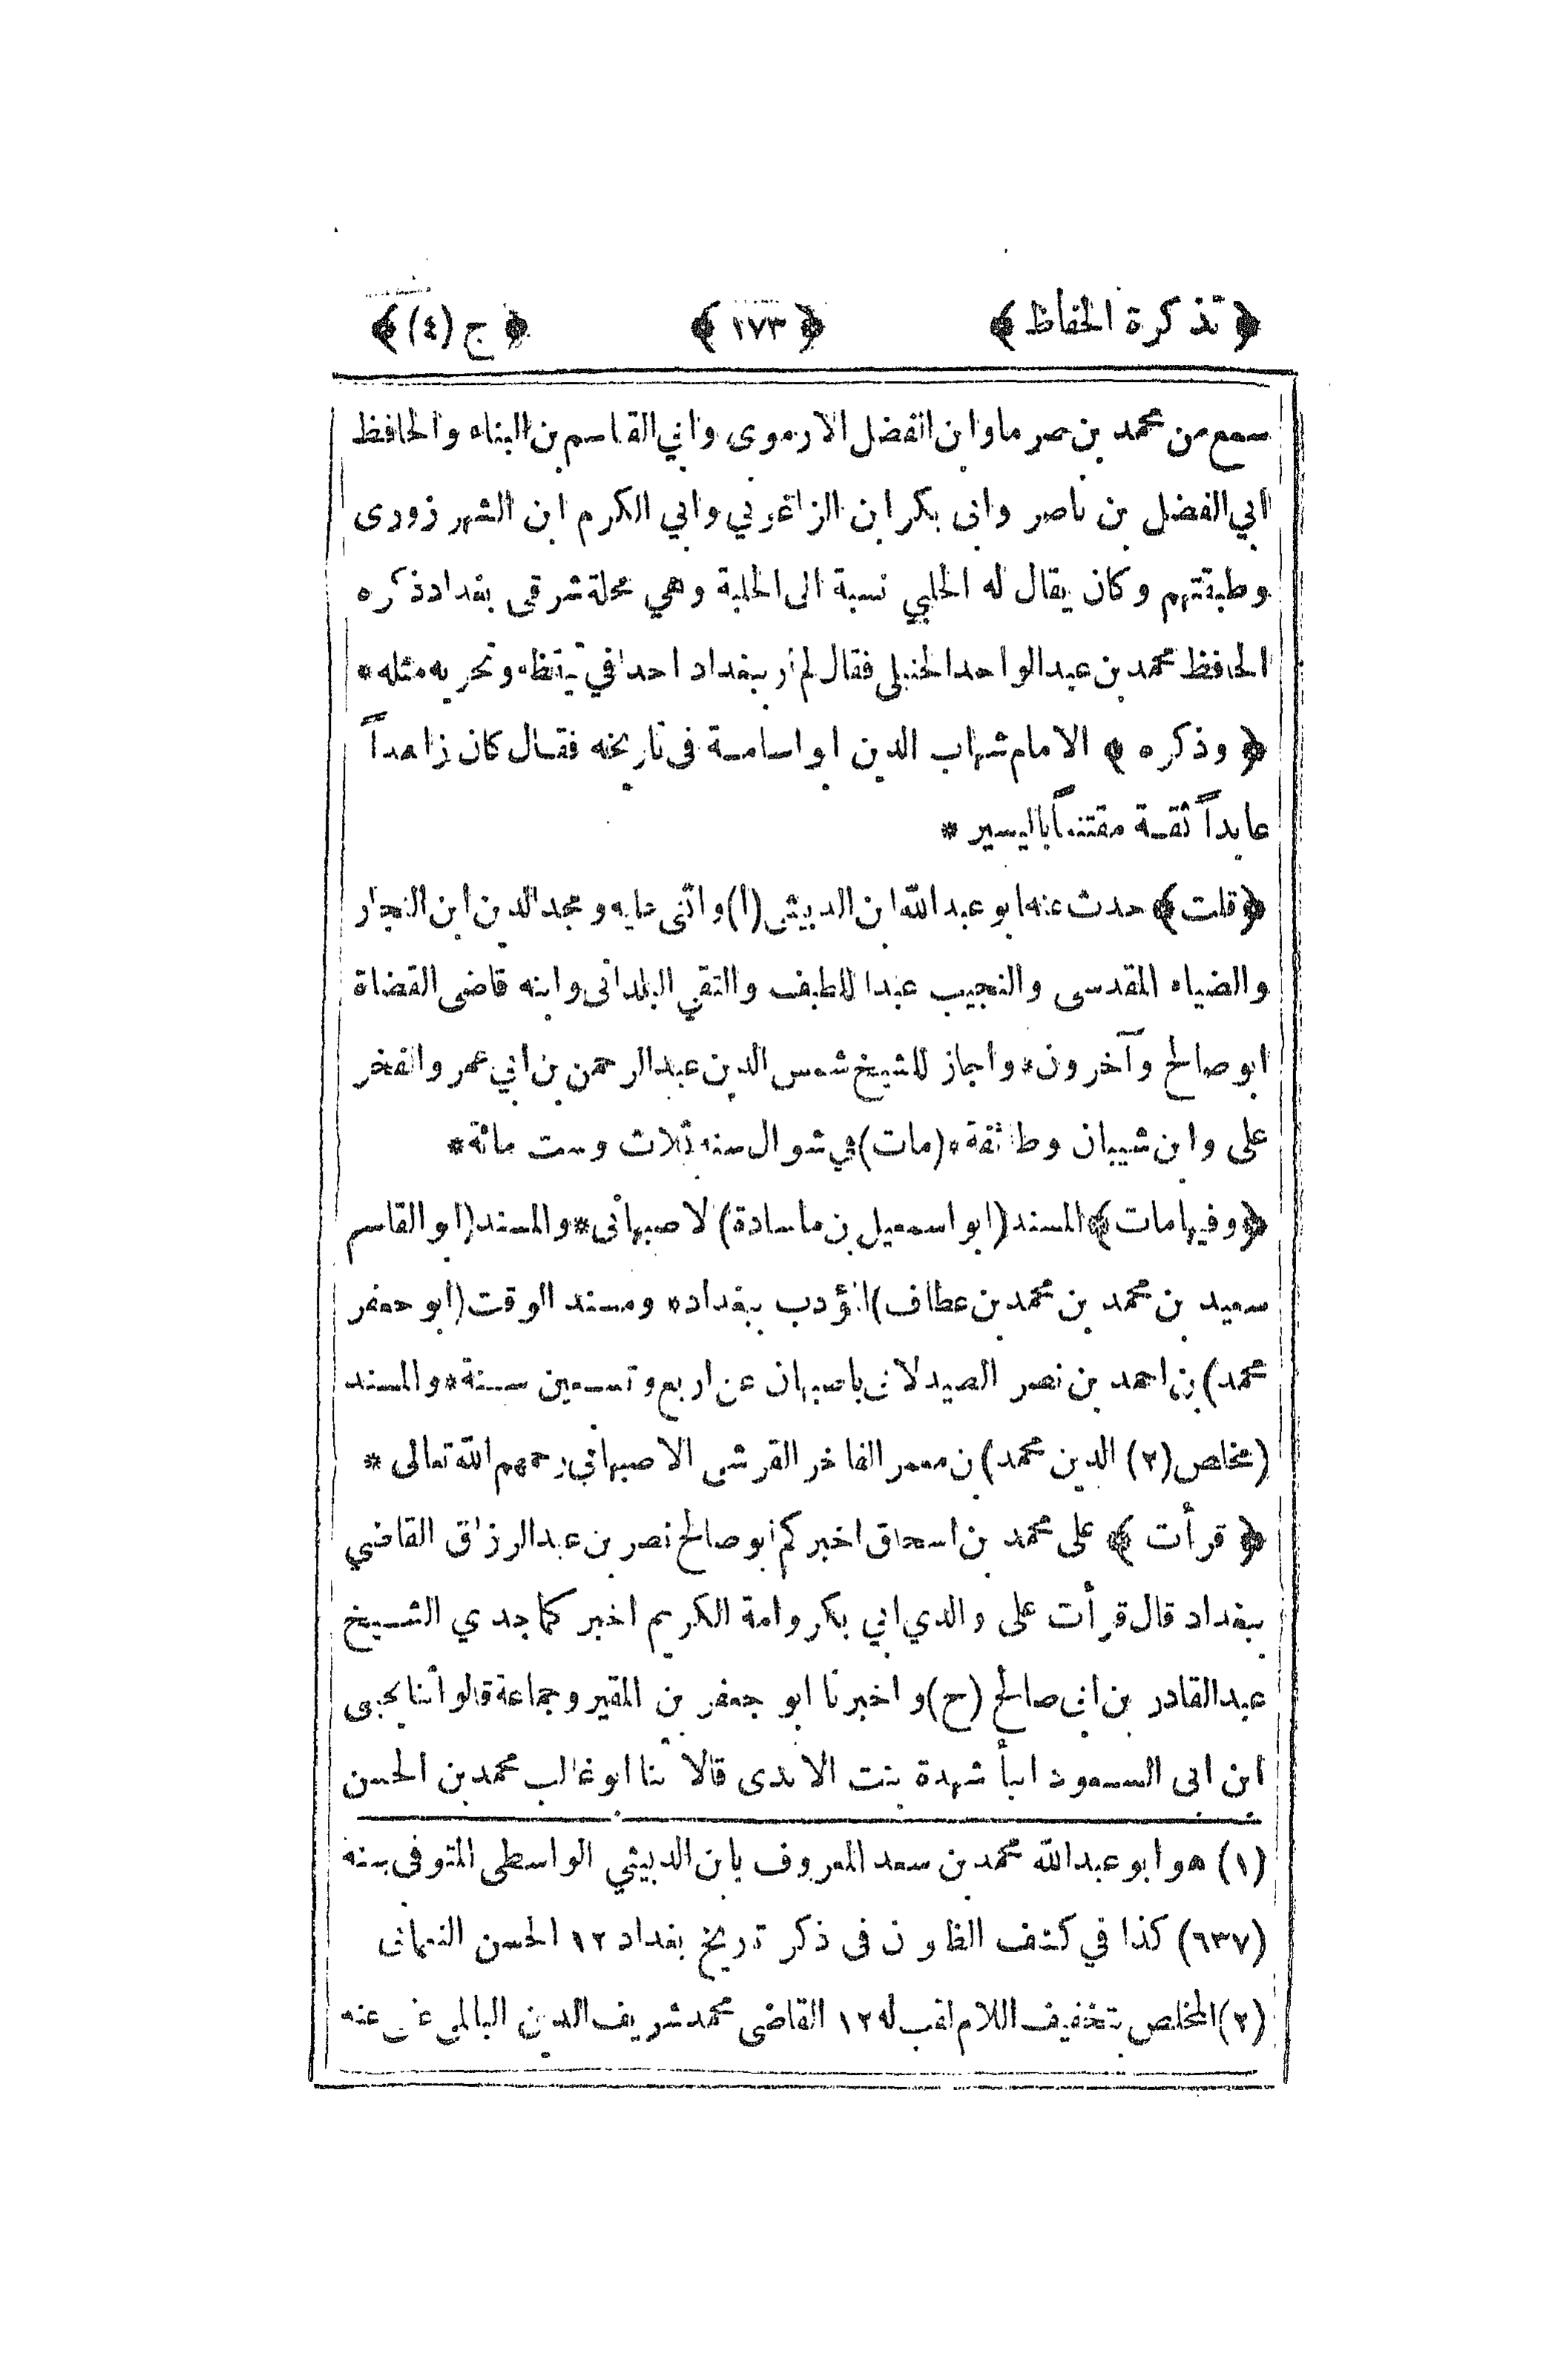 ﴿ تذكرة الحفاظ ﴾ ﴿ ١٧٣ ﴾ ﴿ ج (٤) ﴾
سمع من محمد بن وابن الفضل الارموى وابي القاسم بن البناء والحافظ
ابي الفضل بن ناصر وابى بكر ابن الزاغوني وابي الكرم ابن الشهر زورى
وطبقتهم وكان يقال له الحلبي نسبة الى الحلبة وهي محلة شرقى بغداد ذكره
الحافظ محمد بن عبد الواحد الحنبلى فقال لم أر ببغداد احدا في تيقظه وتحريه مثله *
﴿ وذكره ﴾ الامام شهاب الدين ابو اسامة فى تاريخه فقال كان زاهداً
عابداً ثقة مقتنعاً باليسير *
﴿ قلت ﴾ حدث عنه ابو عبد الله ابن الدبيثى (١) واثنى عليه ومجد الدين ابن النجار
والضياء المقدسى والنجيب عبد اللطيف والتقي البلدانى وابنه قاضى القضاة
ابو صالح وآخرون * واجاز للشيخ شمس الدين عبد الرحمن بن ابي عمر والفخر
على وابن شيبان وطائفة * (مات) في شوال سنة ثلاث وست مائة *
﴿ وفيها مات ﴾ المسند (ابو اسمعيل بن ماسادة) لاصبهانى * والمسند (ابو القاسم
سعيد بن محمد بن محمد بن عطاف) المؤدب ببغداد * ومسند الوقت (ابو جعفر
محمد) بن احمد بن نصر الصيدلانى باصبهان عن اربع وتسعين سنة * والمسند
(مخلص (٢) الدين محمد) بن معمر الفاخر القرشى الاصبهاني رحمهم الله تعالى *
﴿ قرأت ﴾ على محمد بن اسحاق اخبركم ابو صالح نصر بن عبد الرزاق القاضي
ببغداد قال قرأت على والدي ابي بكر وامة الكريم اخبركما جدي الشيخ
عبد القادر بن ابى صالح (ح) واخبرنا ابو جعفر بن المقير وجماعة قالوا أنبا يحيى
ابن ابى السعود انبأ شهدة بنت الابرى قالا ثنا ابو غالب محمد بن الحسن
(١) هو ابو عبد الله محمد بن سعد المعروف بابن الدبيثي الواسطى المتوفى سنه
(٦٣٧) كذا في كشف الظنون فى ذكر تاريخ بغداد ١٢ الحسن النعمانى
(٢) المخلص بتخفيف اللام لقب له ١٢ القاضى محمد شريف الدين عفى عنه